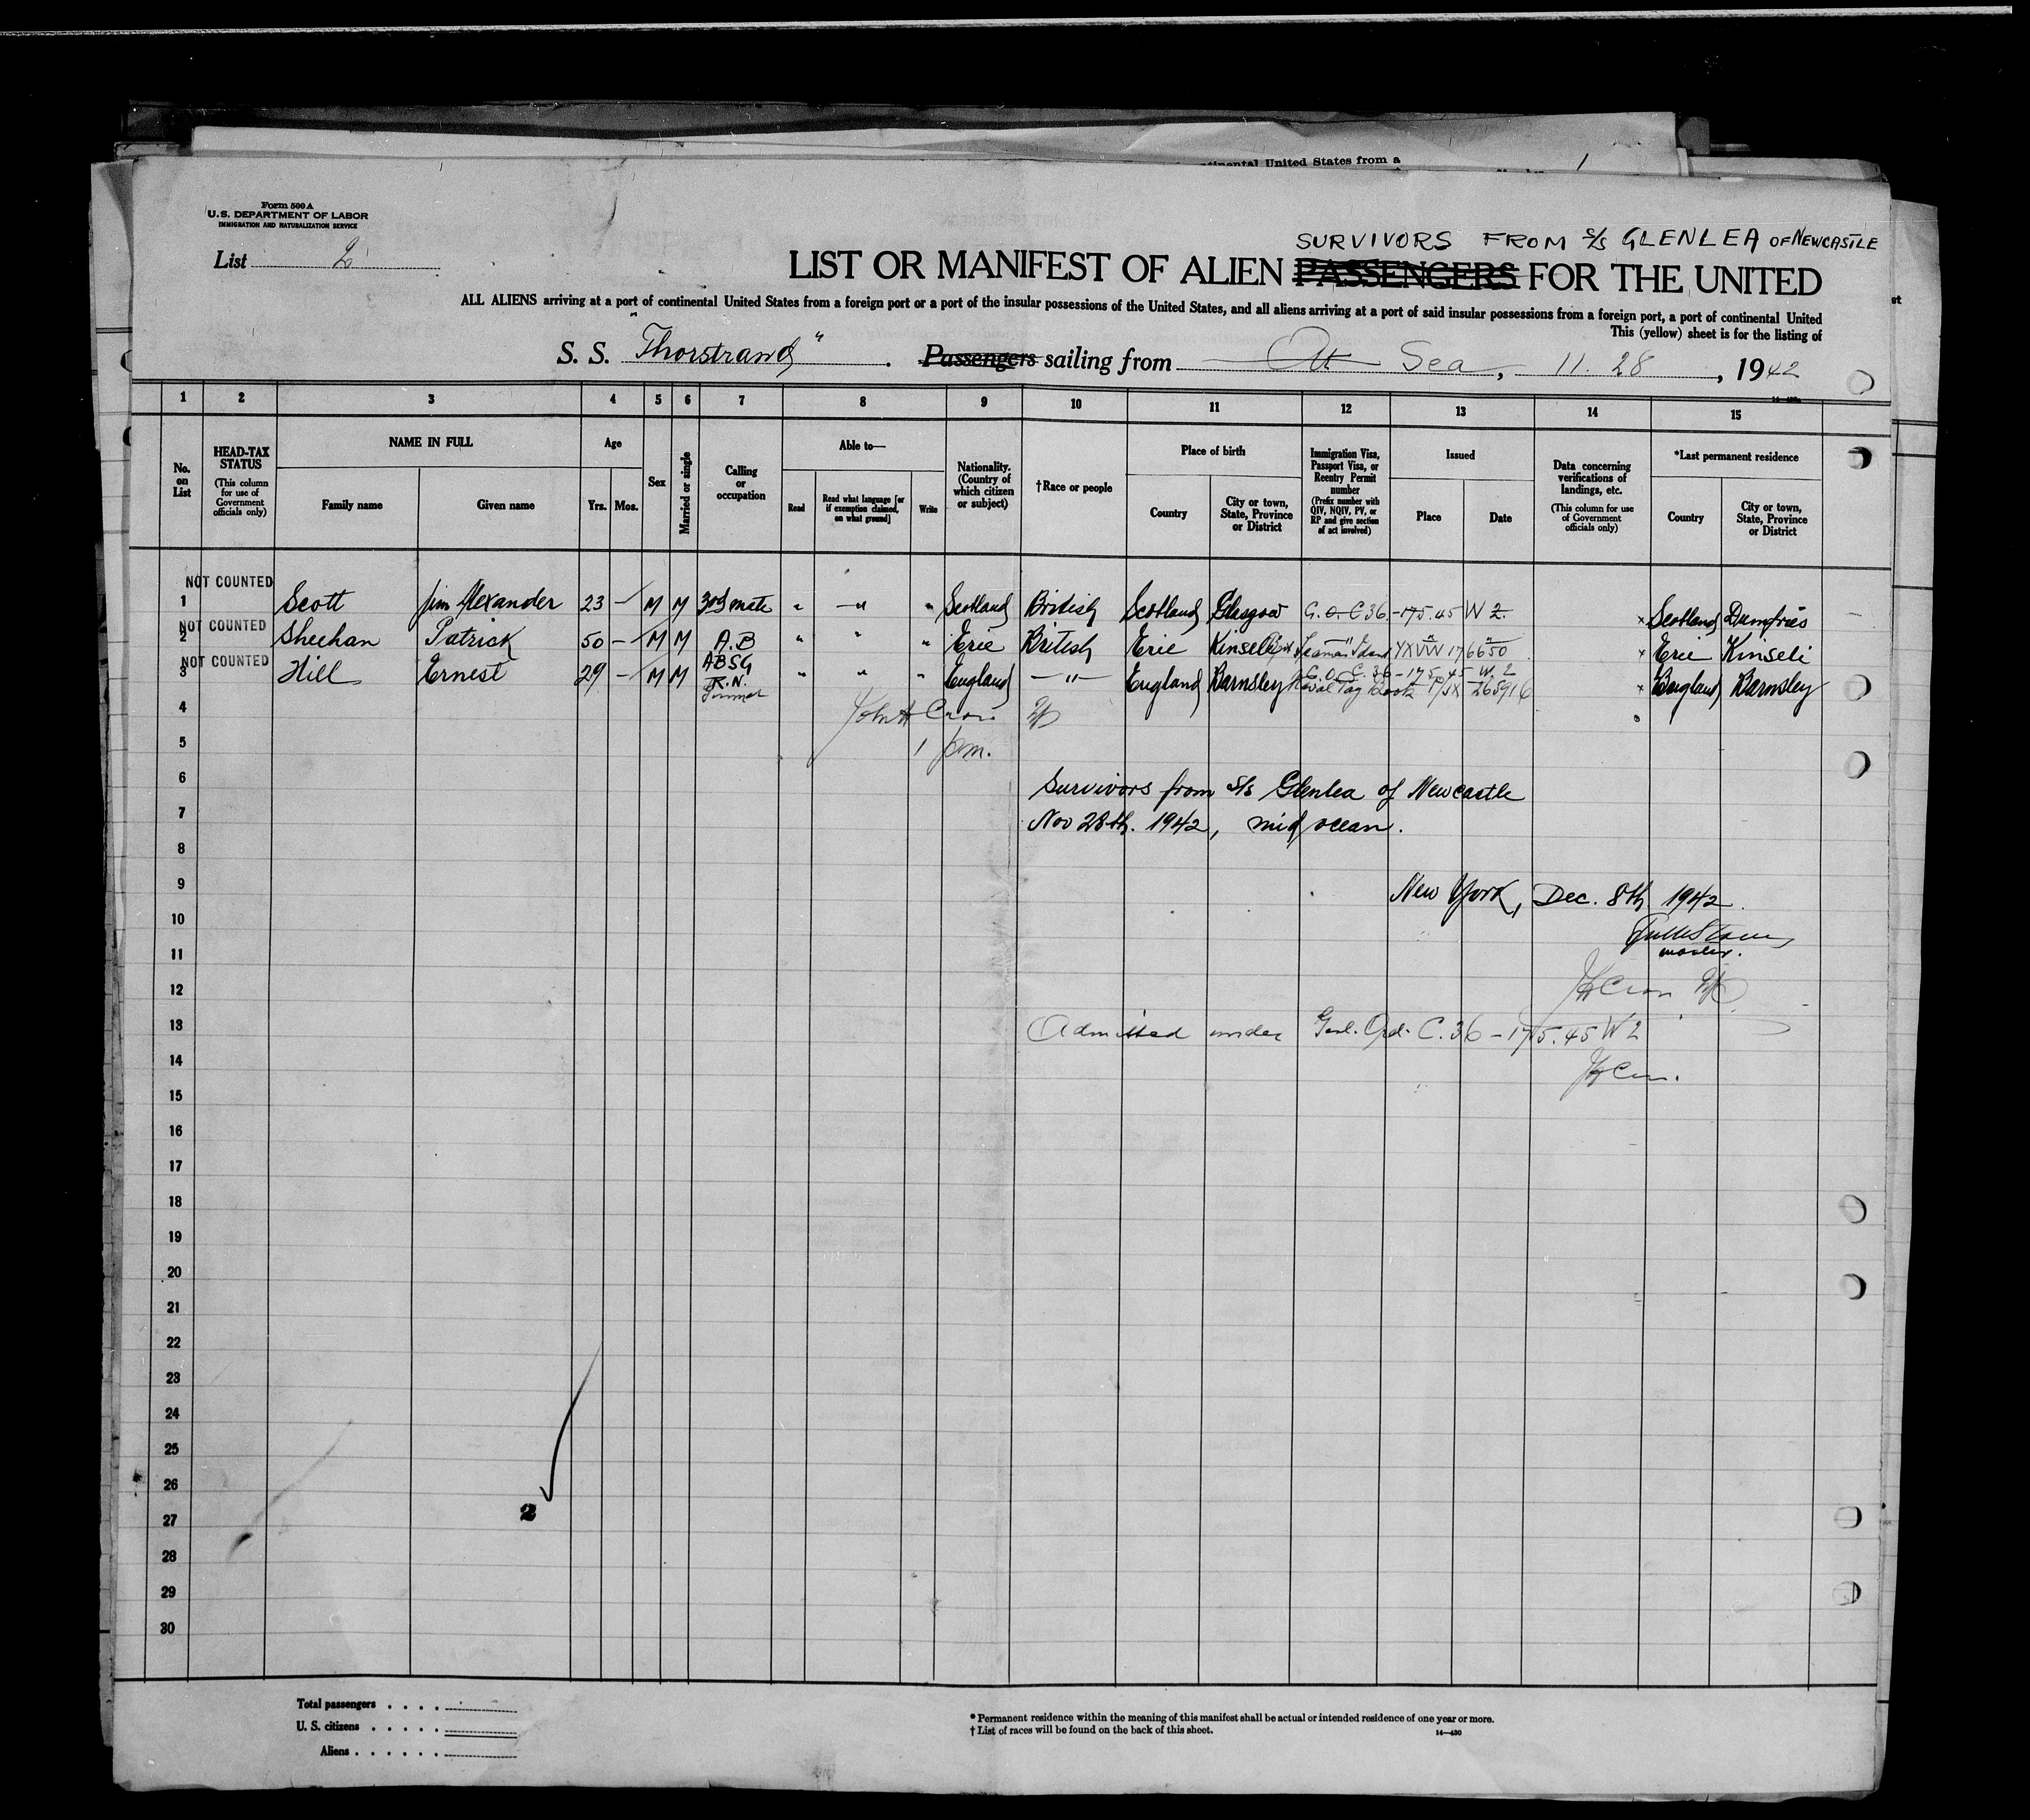 tinental United States from a
Form 500 A
U.S. DEPARTMENT OF LABOR
IMMIGRATION AND NATURALIZATION SERVICE
List 2
SURVIVORS FROM S/S GLENLEA OF NEWCASTLE
LIST OR MANIFEST OF ALIEN PASSENGERS FOR THE UNITED
ALL ALIENS arriving at a port of continental United States from a foreign port or a port of the insular possessions of the United States, and all aliens arriving at a port of said insular possessions from a foreign port, a port of continental United
This (yellow) sheet is for the listing of
S. S. "Thorstrand". Passengers sailing from At Sea, 11. 28, 1942
1 2 3 4 5 6 7 8 9 10 11 12 13 14 15
No. on List
HEAD-TAX STATUS
(This column for use of Government officials only)
NAME IN FULL
Family name Given name
Age
Yrs. Mos.
Sex
Married or single
Calling or occupation
Able to—
Read
Read what language [or if exemption claimed, on what ground]
Write
Nationality. (Country of which citizen or subject)
†Race or people
Place of birth
Country
City or town, State, Province or District
Immigration Visa, Passport Visa, or Reentry Permit number
(Prefix number with QIV, NQIV, PV, or RP and give section of act involved)
Issued
Place Date
Data concerning verifications of landings, etc.
(This column for use of Government officials only)
*Last permanent residence
Country
City or town, State, Province or District
NOT COUNTED
1 Scott Jim Alexander 23 – M M 3rd mate " –"– " Scotland British Scotland Glasgow G.O. C36.-175.45 W 2. x Scotland Dumfries
NOT COUNTED
2 Sheehan Patrick 50 – M M A.B " " " Erie British Erie Kinseli 176650 x Erie Kinseli
NOT COUNTED
G.O. C. 36 – 175.45 W. 2
3 Hill Ernest 29 – M M ABSG R.N. " " " England –"– England Barnsley Naval Pay Book 265916 x England Barnsley
4 John H Cron
5 1 pm.
6 Survivors from S/S Glenlea of Newcastle
7 Nov 28th. 1942, mid ocean.
8
9 New York, Dec. 8th 1942.
10
11 master.
12 JHCron
13 Admitted under Genl. Ord. C.36 – 175.45 W 2
14 JHCron.
15
16
17
18
19
20
21
22
23
24
25
26
2
27
28
29
30
Total passengers . . . .
U. S. citizens . . . . .
Aliens . . . . . .
* Permanent residence within the meaning of this manifest shall be actual or intended residence of one year or more.
† List of races will be found on the back of this sheet.
14—430